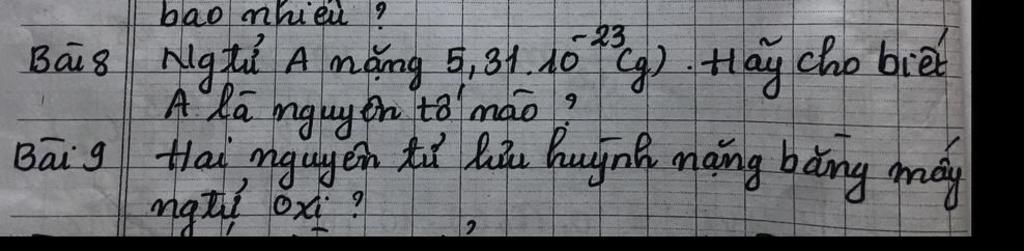 bao nhiêu ?
Bài 8 Ngtử A nặng 5,31.10⁻²³(g). Hãy cho biết
A là nguyên tố nào ?
Bài 9 Hai nguyên tử lưu huỳnh nặng bằng mấy
ngtử oxi ?